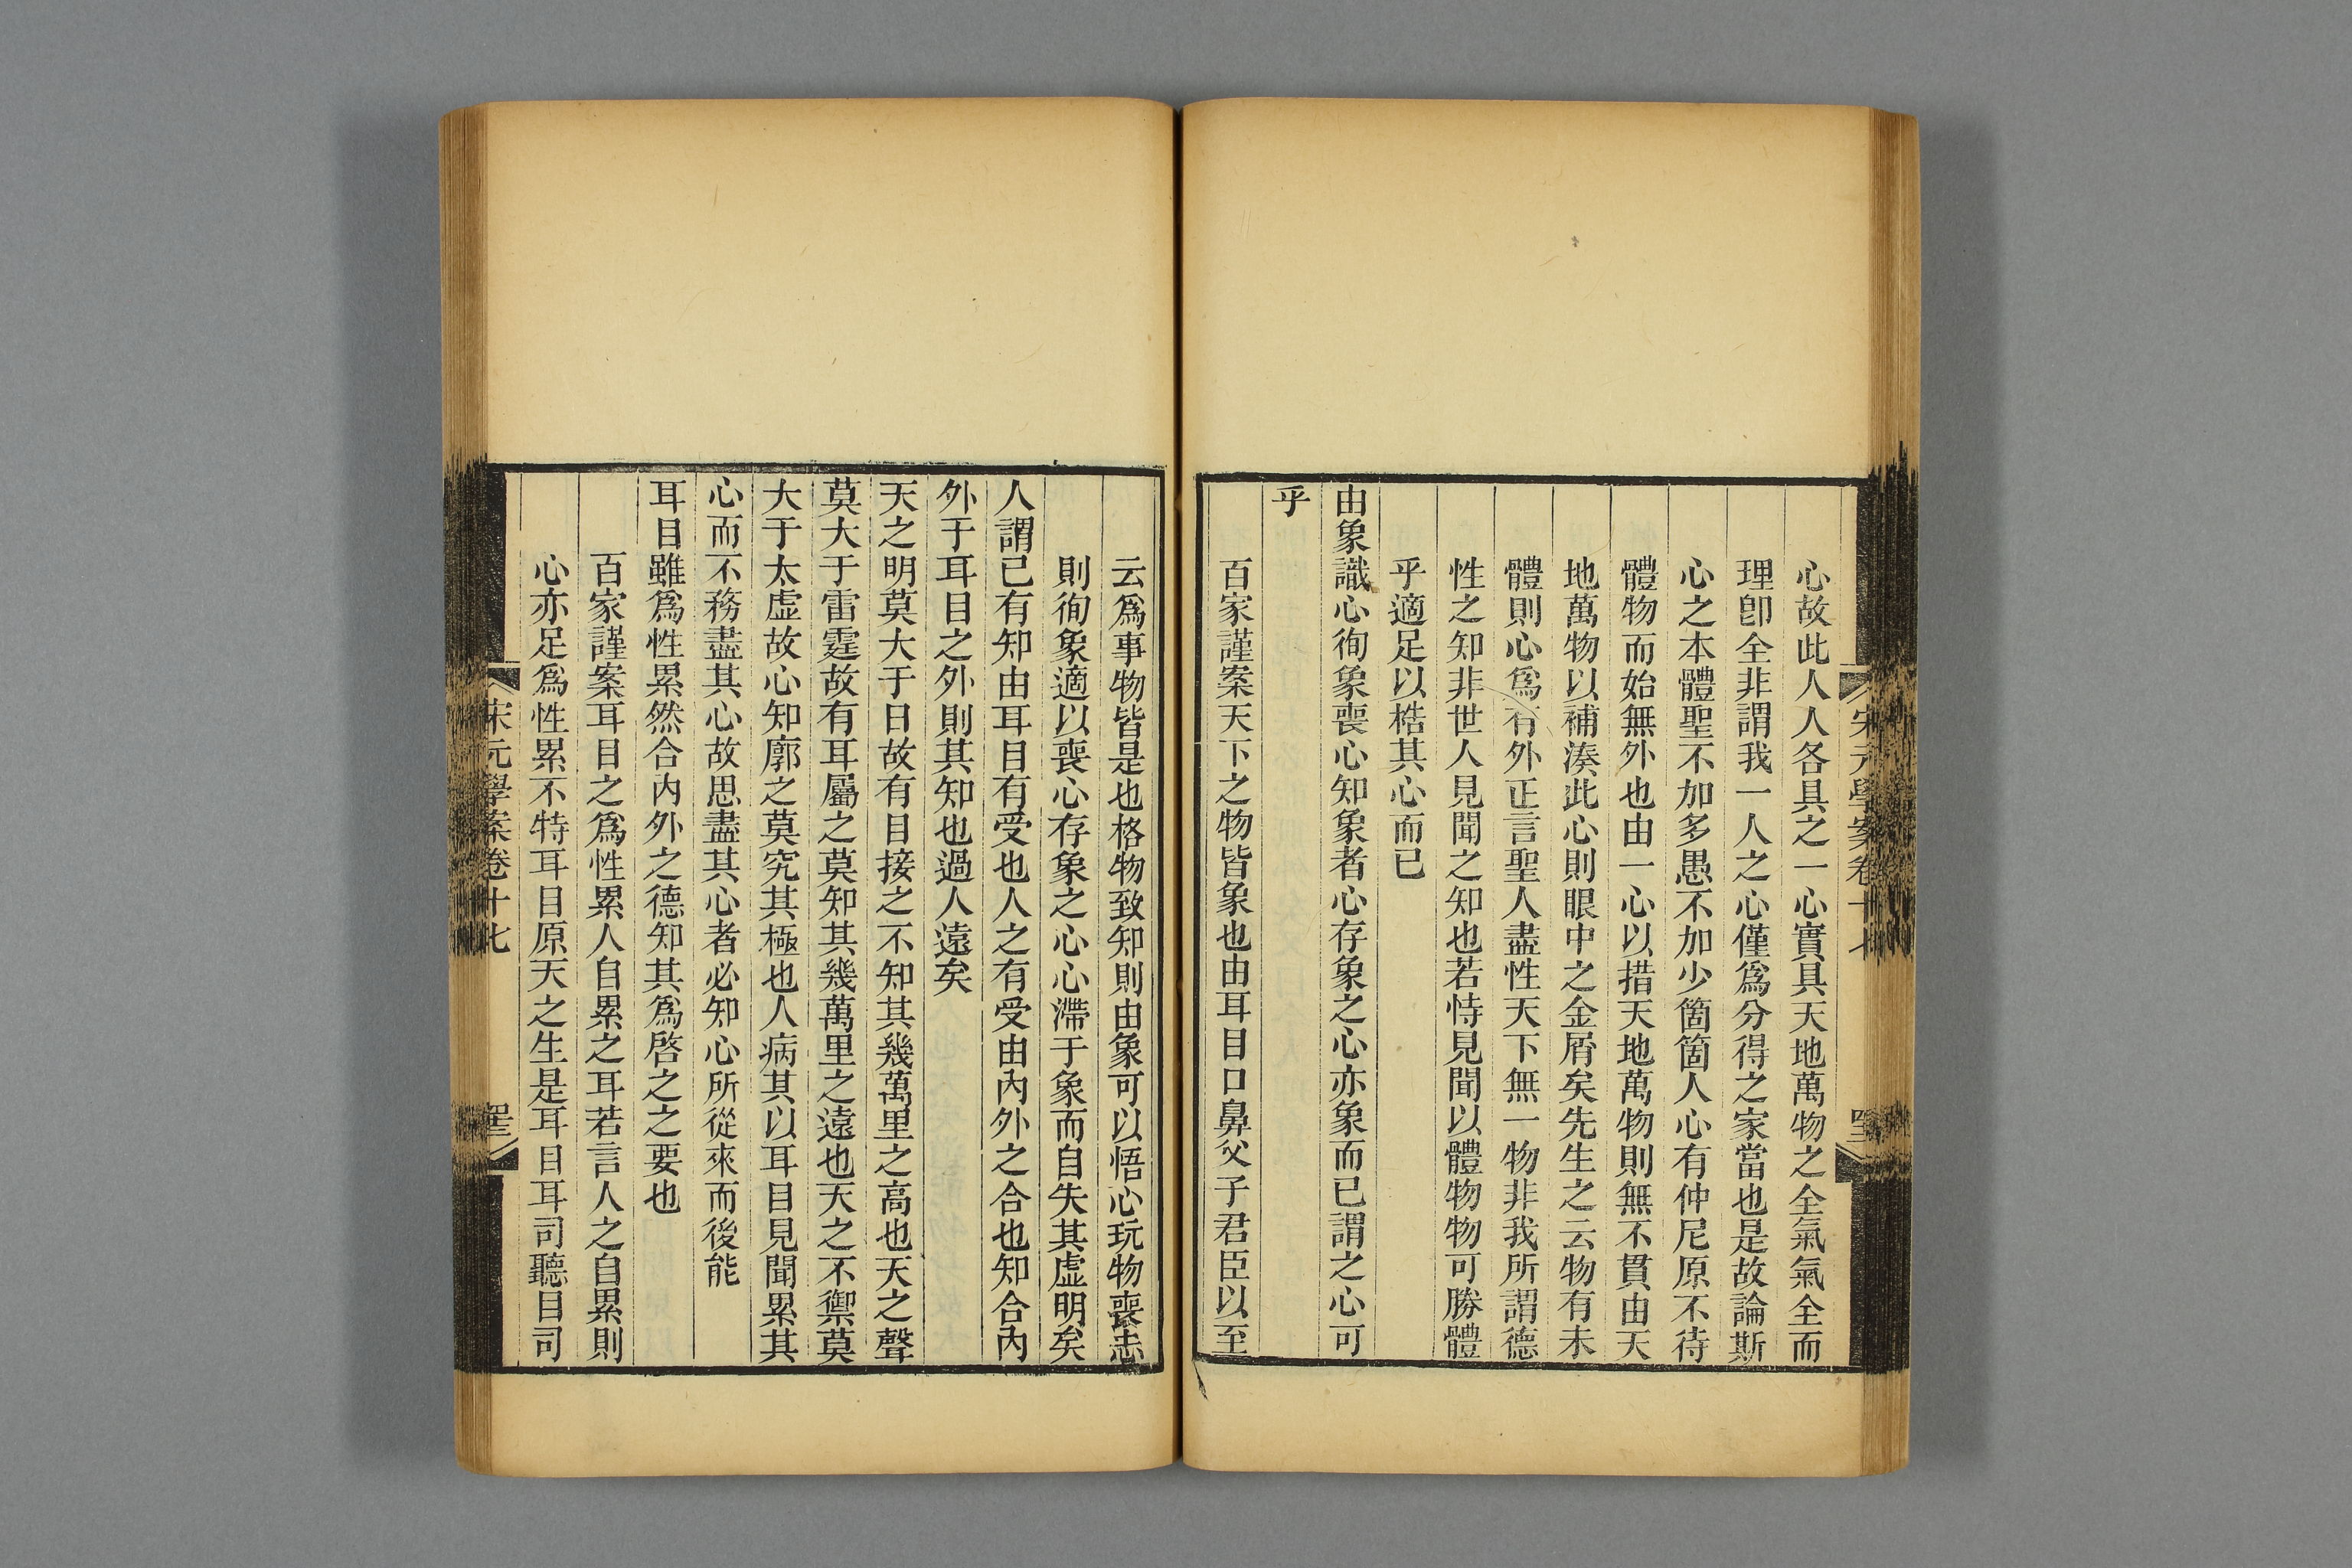 心故此人人各具之一心實具天地萬物之全氣氣全而
理卽全非謂我一人之心僅爲分得之家當也是故論斯
心之本體聖不加多愚不加少箇箇人心有仲尼原不待
體物而始無外也由一心以措天地萬物則無不貫由天
地萬物以補湊此心則眼中之金屑矣先生之云物有未
體則心爲有外正言聖人盡性天下無一物非我所謂德
性之知非世人見聞之知也若恃見聞以體物物可勝體
乎適足以梏其心而已
由象識心徇象喪心知象者心存象之心亦象而已謂之心可
乎
百家謹案天下之物皆象也由耳目口鼻父子君臣以至
云爲事物皆是也格物致知則由象可以悟心玩物喪志
則徇象適以喪心存象之心心滯于象而自失其虛明矣
人謂己有知由耳目有受也人之有受由內外之合也知合內
外于耳目之外則其知也過人遠矣
天之明莫大于日故有目接之不知其幾萬里之高也天之聲
莫大于雷霆故有耳屬之莫知其幾萬里之遠也天之不禦莫
大于太虛故心知廓之莫究其極也人病其以耳目見聞累其
心而不務盡其心故思盡其心者必知心所從來而後能
耳目雖爲性累然合內外之德知其爲啓之之要也
百家謹案耳目之爲性累人自累之耳若言人之自累則
心亦足爲性累不特耳目原天之生是耳目耳司聽目司
宋元學案卷十七